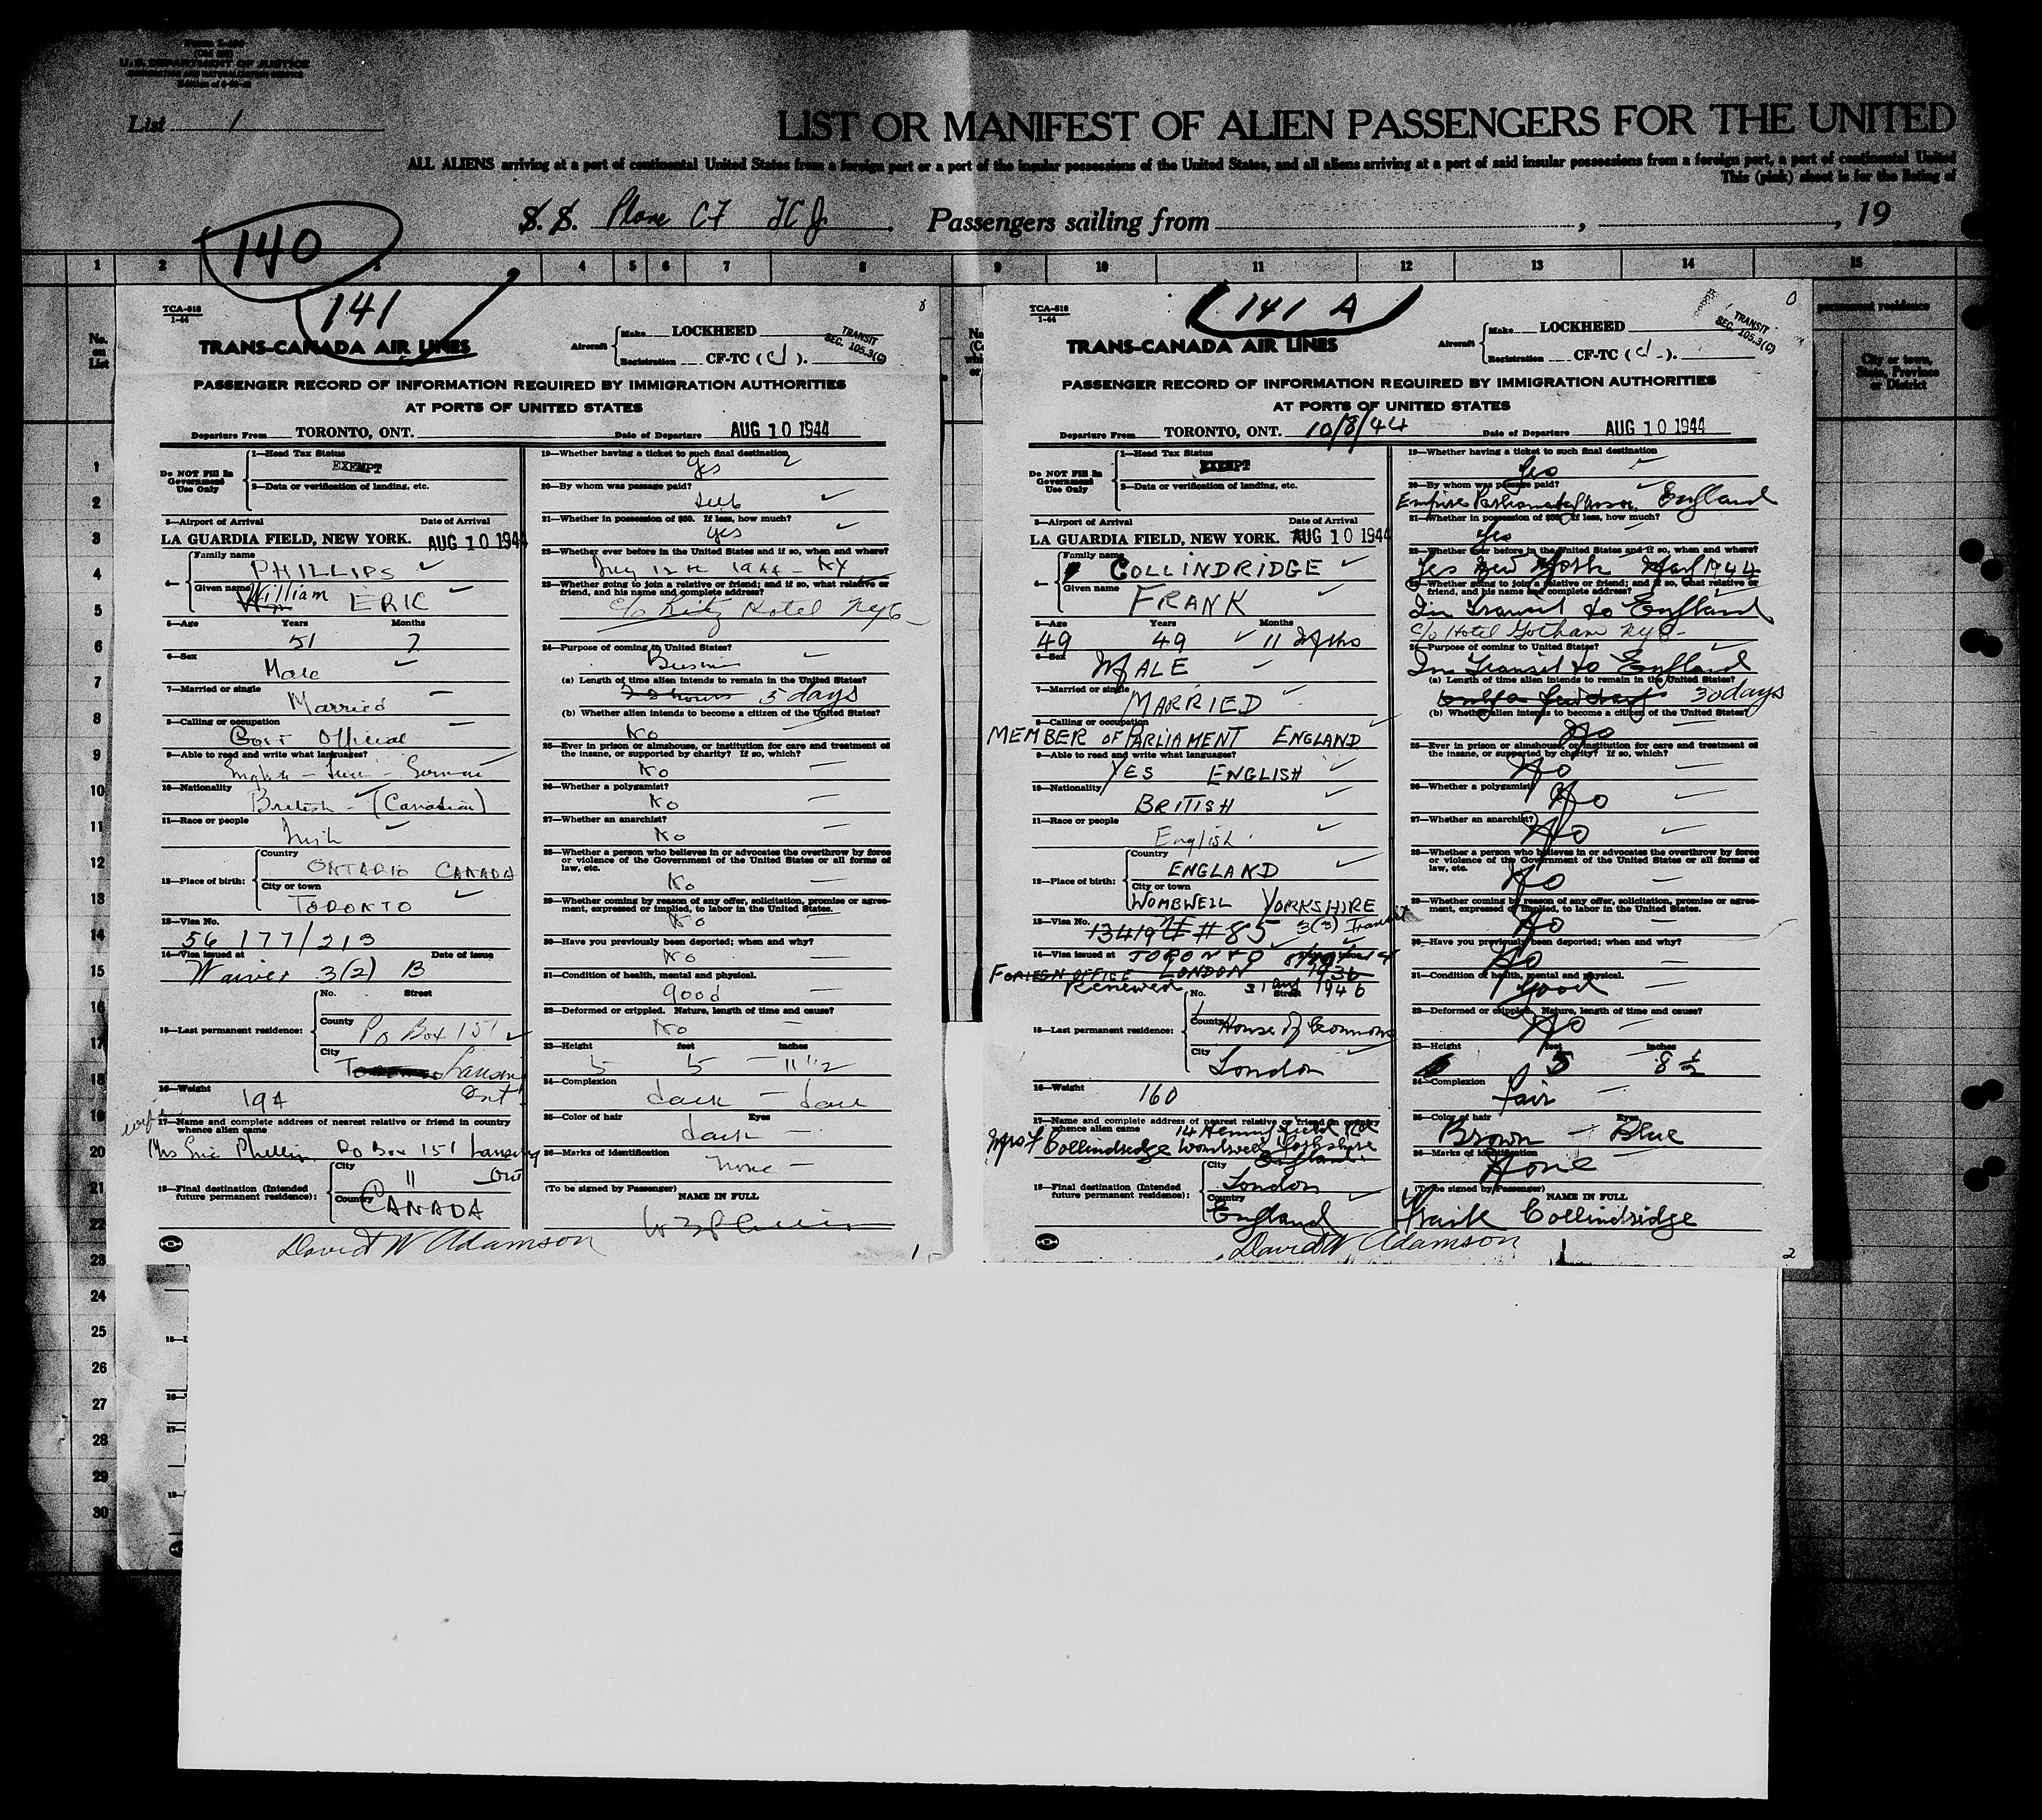 U.S. DEPARTMENT OF JUSTICE
List 1
LIST OR MANIFEST OF ALIEN PASSENGERS FOR THE UNITED
ALL ALIENS arriving at a port of continental United States from a foreign port or a port of the insular possessions of the United States, and all aliens arriving at a port of said insular possessions from a foreign port, a port of continental United
This (pink) sheet is for the listing of
S. S. Plane CF TCJ. Passengers sailing from , , 19
140
1 2 3 4 5 6 7 8 9 10 11 12 13 14 15
No. on List
permanent residence
City or town, State, Province or District
1
2
3
4
5
6
7
8
9
10
11
12
13
14
15
16
17
18
19
20
21
22
23
24
25
26
27
28
29
30
TCA-518
1-44
141
TRANS-CANADA AIR LINES
Aircraft
Make LOCKHEED
Registration CF-TC (J).
TRANSIT
SEC. 105.3(C)
PASSENGER RECORD OF INFORMATION REQUIRED BY IMMIGRATION AUTHORITIES
AT PORTS OF UNITED STATES
Departure From TORONTO, ONT. Date of Departure AUG 10 1944
Do NOT Fill In
Government
Use Only
1—Head Tax Status
EXEMPT
2—Data or verification of landing, etc.
3—Airport of Arrival Date of Arrival
LA GUARDIA FIELD, NEW YORK. AUG 10 1944
4—
Family name
PHILLIPS
Given name
William ERIC
5—Age Years Months
51 7
6—Sex
Male
7—Married or single
Married
8—Calling or occupation
Govt Official
9—Able to read and write what languages?
10—Nationality
British - (Canadian)
11—Race or people
Irish
12—Place of birth:
Country
ONTARIO CANADA
City or town
TORONTO
13—Visa No.
56 177/213
14—Visa issued at Date of issue
Waiver 3(2) B
15—Last permanent residence:
No. Street
County
PO Box 151
City
Lansing
Ont
16—Weight
194
wife
17—Name and complete address of nearest relative or friend in country
whence alien came
Mrs Eric Phillips PO Box 151 Lansing
Ont
18—Final destination (Intended
future permanent residence):
City
"
Country
CANADA
David W Adamson
19—Whether having a ticket to such final destination
Yes
20—By whom was passage paid?
Self
21—Whether in possession of $50. If less, how much?
yes
22—Whether ever before in the United States and if so, when and where?
12th 1944 - NY
23—Whether going to join a relative or friend; and if so, what relative or
friend, and his name and complete address?
c/o Ritz Hotel NYC
24—Purpose of coming to United States?
Business
(a) Length of time alien intends to remain in the United States?
5 days
(b) Whether alien intends to become a citizen of the United States?
No
25—Ever in prison or almshouse, or institution for care and treatment of
the insane, or supported by charity? If so, which?
No
26—Whether a polygamist?
No
27—Whether an anarchist?
No
28—Whether a person who believes in or advocates the overthrow by force
or violence of the Government of the United States or all forms of
law, etc.
No
29—Whether coming by reason of any offer, solicitation, promise or agree-
ment, expressed or implied, to labor in the United States.
No
30—Have you previously been deported; when and why?
No
31—Condition of health, mental and physical.
good
32—Deformed or crippled. Nature, length of time and cause?
No
33—Height feet inches
5 5 11 1/2
34—Complexion
dark
35—Color of hair Eyes
dark
36—Marks of identification
none
(To be signed by Passenger)
NAME IN FULL
1
TCA-518
1-44
141 A
TRANS-CANADA AIR LINES
Aircraft
Make LOCKHEED
Registration CF-TC (J).
TRANSIT
SEC. 105.3(C)
PASSENGER RECORD OF INFORMATION REQUIRED BY IMMIGRATION AUTHORITIES
AT PORTS OF UNITED STATES
Departure From TORONTO, ONT. 10/8/44 Date of Departure AUG 10 1944
Do NOT Fill In
Government
Use Only
1—Head Tax Status
EXEMPT
2—Data or verification of landing, etc.
3—Airport of Arrival Date of Arrival
LA GUARDIA FIELD, NEW YORK. AUG 10 1944
4—
Family name
COLLINDRIDGE
Given name
FRANK
5—Age Years Months
49 49 11 Mths
6—Sex
MALE
7—Married or single
MARRIED
8—Calling or occupation
MEMBER OF PARLIAMENT ENGLAND
9—Able to read and write what languages?
YES ENGLISH
10—Nationality
BRITISH
11—Race or people
English
12—Place of birth:
Country
ENGLAND
City or town
WOMBWELL YORKSHIRE
13—Visa No.
13419 # 85 3(3) Transit
14—Visa issued at TORONTO
FOREIGN OFFICE LONDON 1936
Renewed 31 Aug 1946
15—Last permanent residence:
No. Street
County
House of Commons
City
London
16—Weight
160
17—Name and complete address of nearest relative or friend in country
whence alien came
Mrs F Collindridge Wombwell Yorkshire
England
18—Final destination (Intended
future permanent residence):
City
London
Country
England
David W Adamson
19—Whether having a ticket to such final destination
Yes
20—By whom was passage paid?
Empire Parliamentary Assoc. England
21—Whether in possession of $50. If less, how much?
Yes
22—Whether ever before in the United States and if so, when and where?
Yes New York May 1944
23—Whether going to join a relative or friend; and if so, what relative or
friend, and his name and complete address?
In Transit to England
c/o Hotel Gotham NYC
24—Purpose of coming to United States?
In Transit to England
(a) Length of time alien intends to remain in the United States?
30 days
(b) Whether alien intends to become a citizen of the United States?
No
25—Ever in prison or almshouse, or institution for care and treatment of
the insane, or supported by charity? If so, which?
No
26—Whether a polygamist?
No
27—Whether an anarchist?
No
28—Whether a person who believes in or advocates the overthrow by force
or violence of the Government of the United States or all forms of
law, etc.
No
29—Whether coming by reason of any offer, solicitation, promise or agree-
ment, expressed or implied, to labor in the United States.
No
30—Have you previously been deported; when and why?
No
31—Condition of health, mental and physical.
Good
32—Deformed or crippled. Nature, length of time and cause?
No
33—Height feet inches
5 8 1/2
34—Complexion
Fair
35—Color of hair Eyes
Brown - Blue
36—Marks of identification
None
(To be signed by Passenger)
NAME IN FULL
Frank Collindridge
2